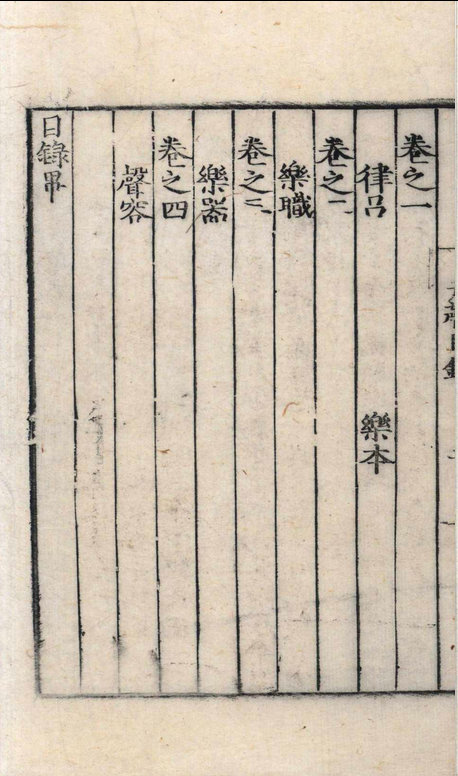 卷之一
律呂 樂本
卷之二
樂職
卷之三
樂器
卷之四
聲容
目錄畢